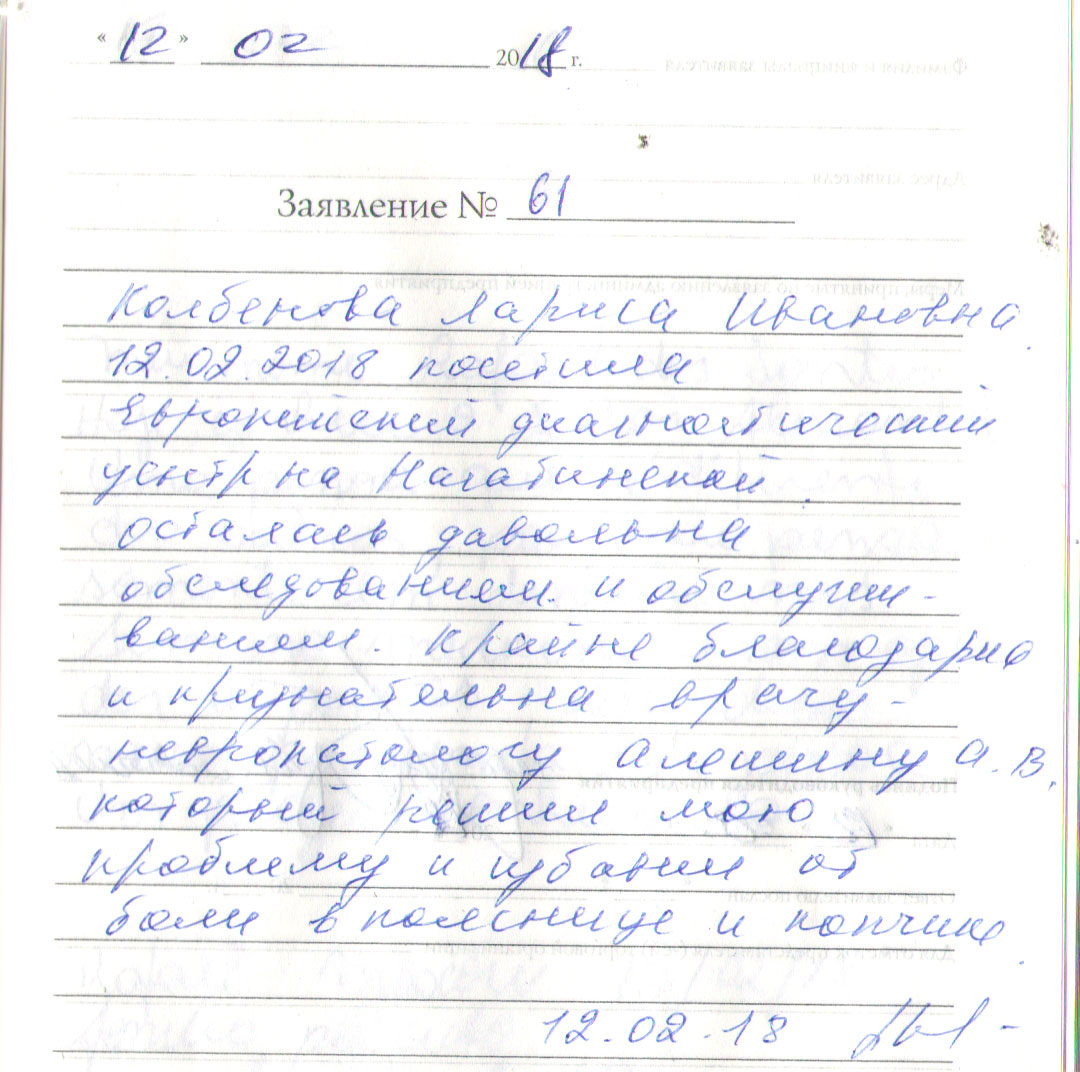 « 12 » 02 2018 г.
Заявление № 61
Колбенова Лариса Ивановна
12.02.2018 посетила
Европейский диагностический
центр на Нагатинской.
осталась давольна
обследованием и обслужи-
ванием. Крайне благодарна
и признательна врачу-
невропатологу Алешину А.В.
который решил мою
проблему и избавил от
боли в пояснице и копчике.
12.02.18